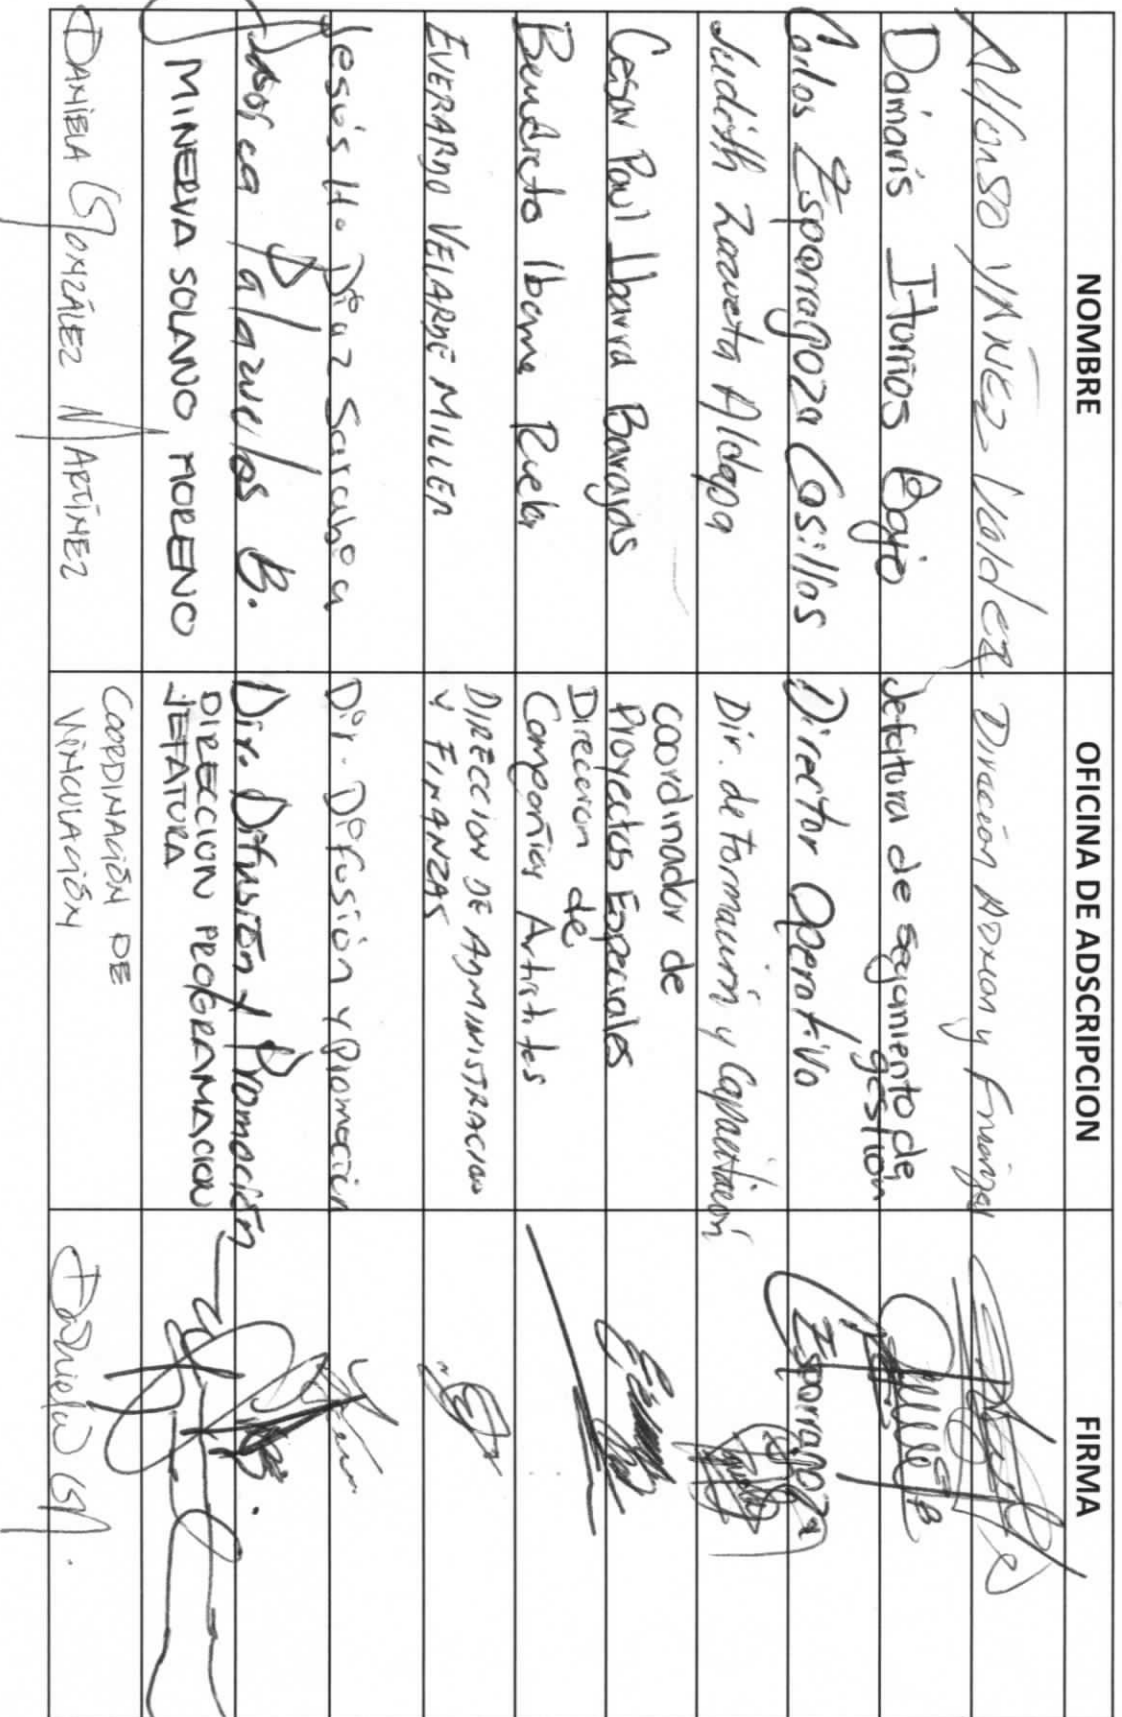 NOMBRE OFICINA DE ADSCRIPCION FIRMA
Alfonso YAÑEZ Valdez Dirección Admon y Finanzas
Damaris Iturrios Bajo Jefatura de seguimiento de
gestión
Carlos Esparragoza Casillas Director Operativo Esparragoza
Judith Zazueta Aldapa Dir. de Formación y Capacitación
Cesar Paul Ibarra Barajas Coordinador de
Proyectos Especiales
Benedicto Ibarra Rueda Direccion de
Compañías Artistitas
EVERARDO VELARDE MILLER DIRECCION DE ADMINISTRACION
Y FINANZAS
Jesús H. Díaz Sarabia Dir. Difusión y Promoción
Jessica Palazuelos B. Dir. Difusión y Promoción
MINERVA SOLANO MORENO DIRECCION PROGRAMACION
JEFATURA
DANIELA GONZÁLEZ MARTÍNEZ COORDINACIÓN DE
VINCULACIÓN
Daniela GM.